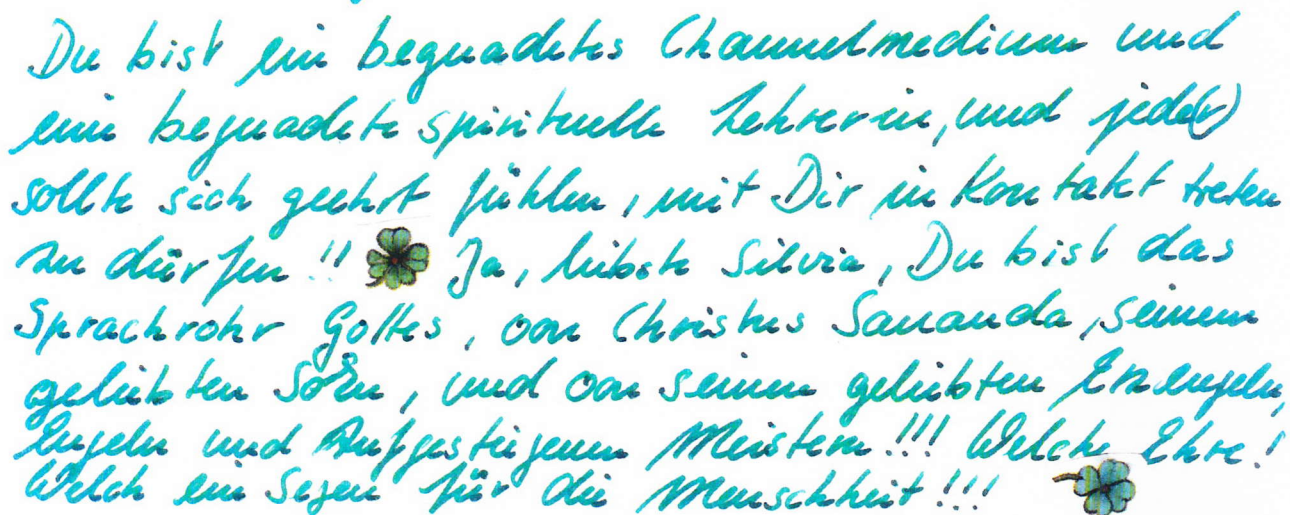 Du bist ein begnadetes Channelmedium und
eine begnadete spirituelle Lehrerin, und jede(r)
sollte sich geehrt fühlen, mit Dir in Kontakt treten
zu dürfen!! Ja, liebste Silvia, Du bist das
Sprachrohr Gottes, von Christus Sananda, seinem
geliebten Sohn, und von seinen geliebten Erzengeln,
Engeln und Aufgestiegenen Meistern!!! Welche Ehre!
Welch ein Segen für die Menschheit!!!